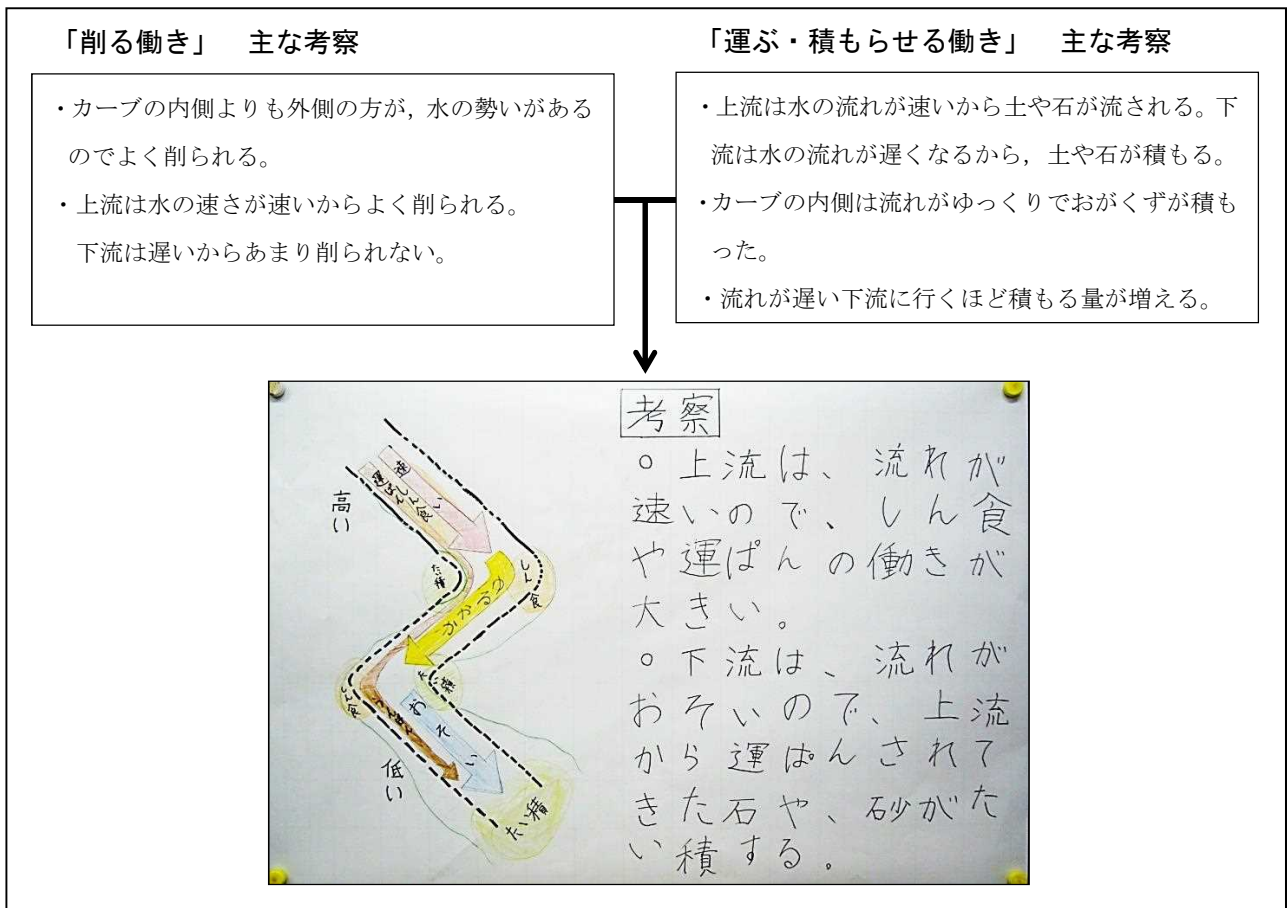 「削る働き」 主な考察
・カーブの内側よりも外側の方が，水の勢いがある
のでよく削られる。
・上流は水の速さが速いからよく削られる。
下流は遅いからあまり削られない。
「運ぶ・積もらせる働き」 主な考察
・上流は水の流れが速いから土や石が流される。下
流は水の流れが遅くなるから，土や石が積もる。
・カーブの内側は流れがゆっくりでおがくずが積も
った。
・流れが遅い下流に行くほど積もる量が増える。
高い
速い
しん食
運ぱん
たい積
しん食
ゆるやか
しん食
たい積
うんぱん
おそい
低い
たい積
考察
○上流は、流れが
速いので、しん食
や運ぱんの働きが
大きい。
○下流は、流れが
おそいので、上流
から運ぱんされて
きた石や、砂がた
い積する。